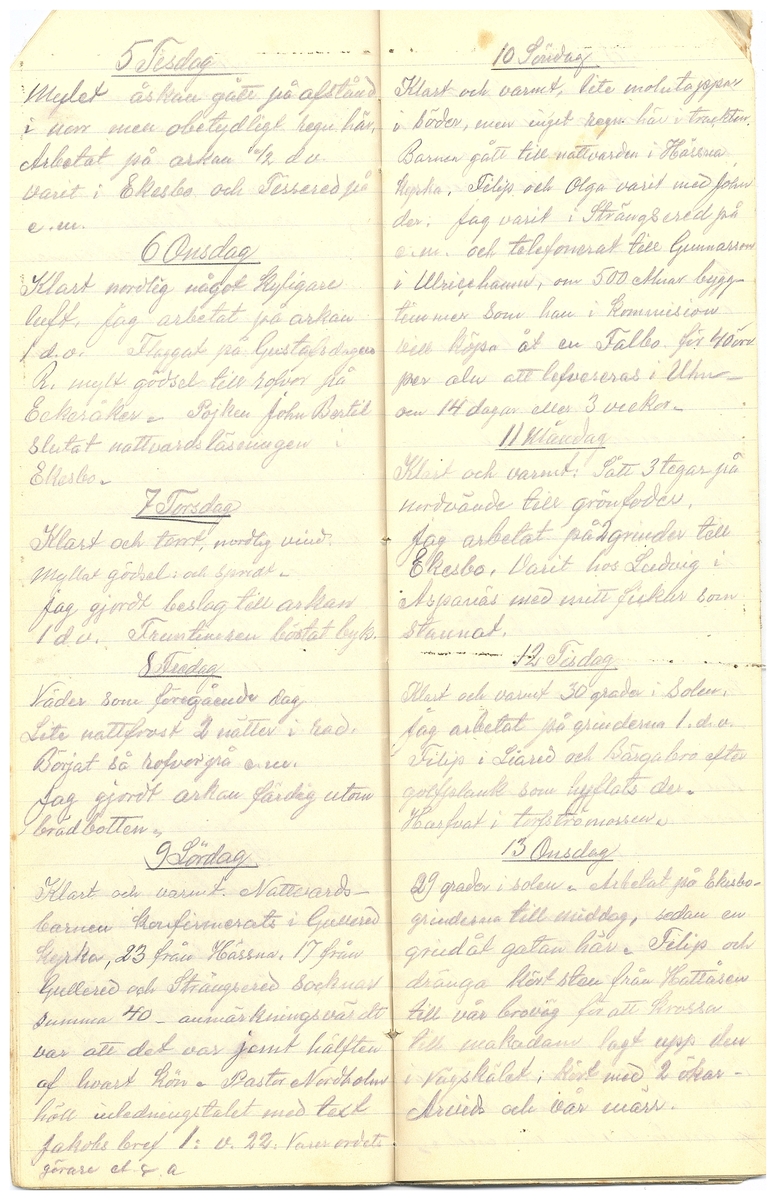 5 Tisdag
Mulet åskan gått på afstånd
i norr men obetydligt regn här.
Arbetat på arkan 1/2 d v.
varit i Ekesbo och Tissered på
e.m.
6 Onsdag
Klart nordlig något kyligare
luft. Jag arbetat på arkan
1 d.v. Flaggat på Gustafsdagen
R. mylt gödsel till rofvor på
Ekesåker. Pojken John Bertil
slutat nattvardsläsningen i
Ekesbo.
7 Torsdag
Klart och torrt, nordlig vind.
Myllat gödsel: och spridt.
Jag gjordt beslag till arkan
1 d v. Fruntimren böstat byk.
8 Fredag
Väder som föregående dag
Lite nattfrost 2 nätter i rad.
Börjat så rofvor på e.m.
Jag gjordt arkan färdig utom
brädbotten.
9 Lördag
Klart och varmt. Nattvards-
barnen konfirmerats i Gullered
kyrka, 23 från Hössna. 17 från
Gullered och Strängsered socknar
summa 40 – anmärkningsvärdt
var att det var jemt hälften
af hvart kön. Pastor Nordholm
höll inledningstalet med text
Jakobs bref 1: v. 22: Varer ordets
görare et & a
10 Söndag
Klart och varmt, lite molntappar
i söder, men inget regn här i trakten.
Barnen gått till nattvarden i Hössna
kyrka. Filip och Olga varit med John
der. Jag varit i Strängsered på
e.m. och telefonerat till Gunnarson
i Ulricehamn, om 500 alnar bygg-
timmer som han i kommision
vill köpa åt en Falbo för 40 öre
per aln att lefvereras i Uhn
om 14 dagar eller 3 veckor.
11 Måndag
Klart och varmt: Sått 3 tegar på
nordvände till grönfoder.
Jag arbetat på 2 grinder till
Ekesbo. Varit hos Ludvig i
Aspanäs med mitt fickur som
stannat.
12 Tisdag
Klart och varmt 30 grader i solen.
Jag arbetat på grinderna 1. d. v.
Filip i Liared och Bärgabro efter
golfplank som hyflats der.
Harfvat i torfströmossen.
13 Onsdag
29 grader i solen. Arbetat på Ekesbo-
grinderna till middag, sedan en
grind åt gatan här. Filip och
dränga kört sten från Hattåsen
till vår brovåg för att krossa
till makadam lagt upp den
i Vägskälet; kört med 2 ökar –
Arvids och vår märr.